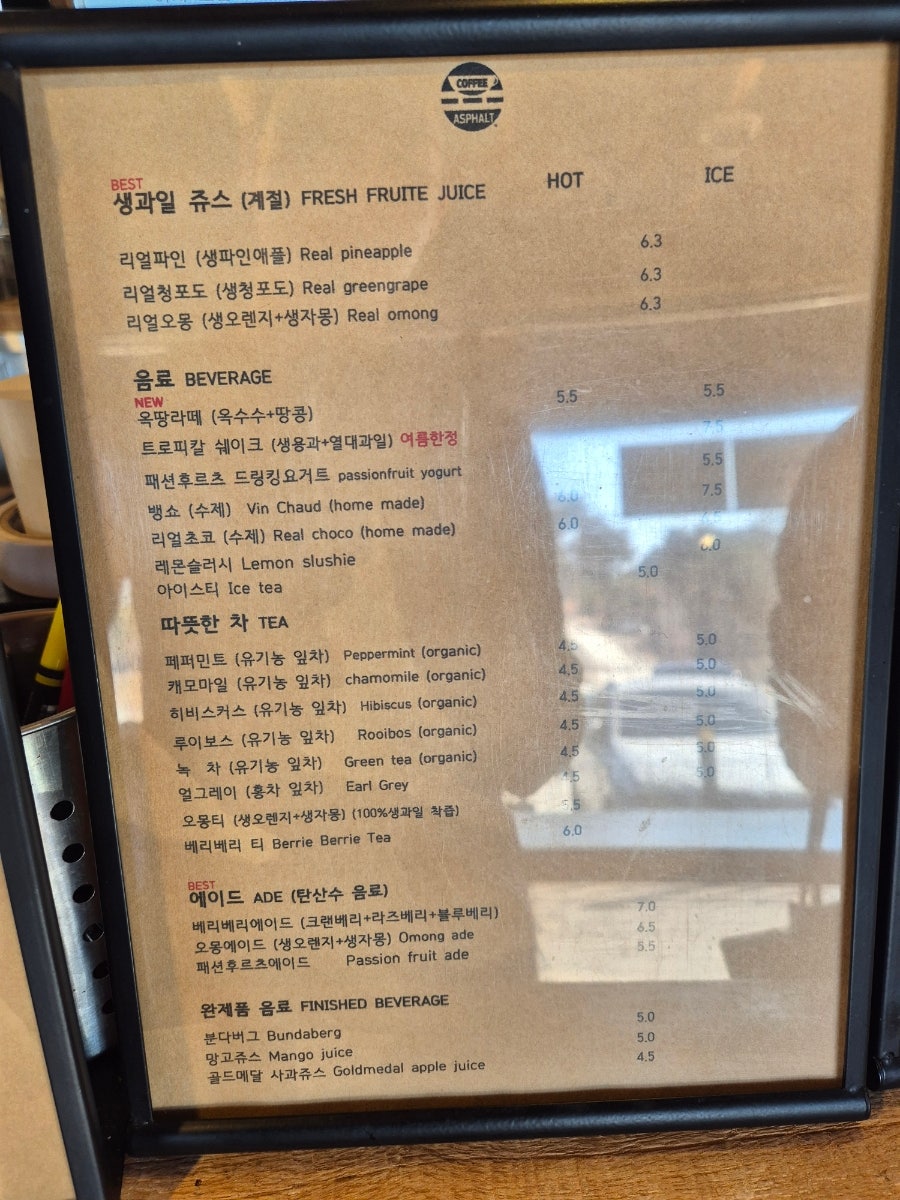 COFFEE
ASPHALT
BEST
생과일 쥬스 (계절) FRESH FRUITE JUICE HOT ICE
리얼파인 (생파인애플) Real pineapple 6.3
리얼청포도 (생청포도) Real greengrape 6.3
리얼오몽 (생오렌지+생자몽) Real omong 6.3
음료 BEVERAGE
NEW
옥땅라떼 (옥수수+땅콩) 5.5 5.5
트로피칼 쉐이크 (생용과+열대과일) 여름한정 7.5
패션후르츠 드링킹요거트 passionfruit yogurt 5.5
뱅쇼 (수제) Vin Chaud (home made) 6.0 7.5
리얼초코 (수제) Real choco (home made) 6.0
레몬슬러시 Lemon slushie 6.0
아이스티 Ice tea 5.0
따뜻한 차 TEA
페퍼민트 (유기농 잎차) Peppermint (organic) 4.5 5.0
캐모마일 (유기농 잎차) chamomile (organic) 4.5 5.0
히비스커스 (유기농 잎차) Hibiscus (organic) 4.5 5.0
루이보스 (유기농 잎차) Rooibos (organic) 4.5 5.0
녹 차 (유기농 잎차) Green tea (organic) 4.5 5.0
얼그레이 (홍차 잎차) Earl Grey 4.5 5.0
오몽티 (생오렌지+생자몽) (100%생과일 착즙) 5.5
베리베리 티 Berrie Berrie Tea 6.0
BEST
에이드 ADE (탄산수 음료)
베리베리에이드 (크랜베리+라즈베리+블루베리) 7.0
오몽에이드 (생오렌지+생자몽) Omong ade 6.5
패션후르츠에이드 Passion fruit ade 5.5
완제품 음료 FINISHED BEVERAGE
분다버그 Bundaberg 5.0
망고쥬스 Mango juice 5.0
골드메달 사과쥬스 Goldmedal apple juice 4.5